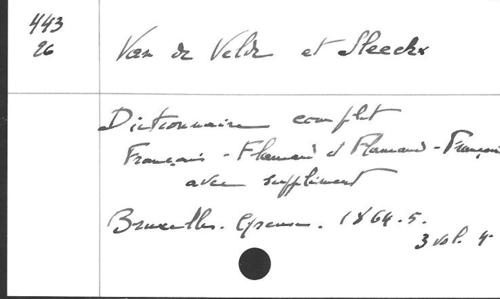 443
26
Van de Velde et Sleeckx
Dictionnaire complet
Français - Flamand et Flamand - Français
avec supplément
Bruxelles. Greuse. 1864-5.
3 vol. 4°